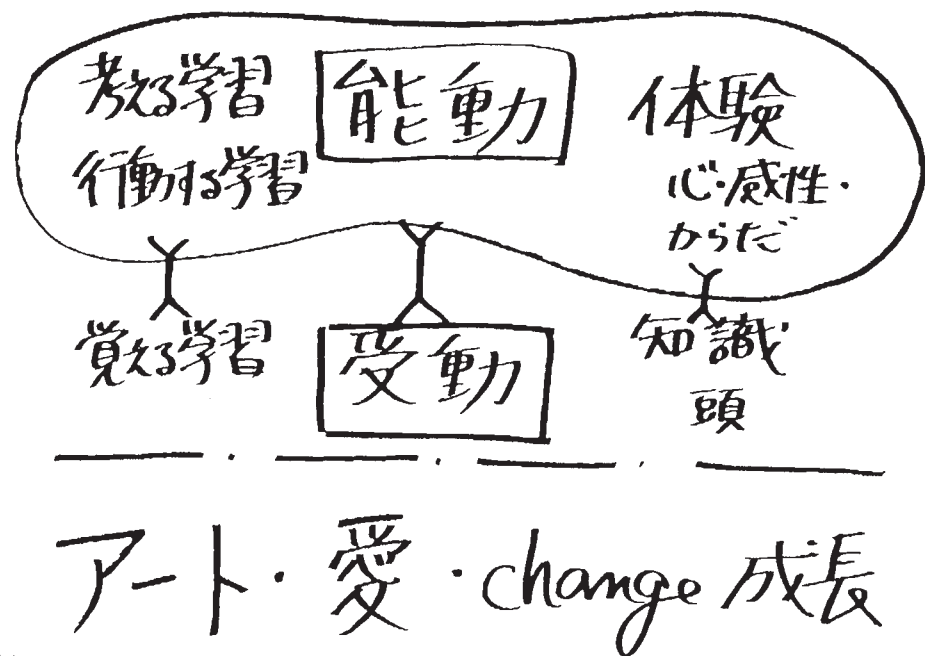 考える学習 能動 体験
行動する学習 心・感性・
からだ
覚える学習 受動 知識
頭
アート・愛・change 成長